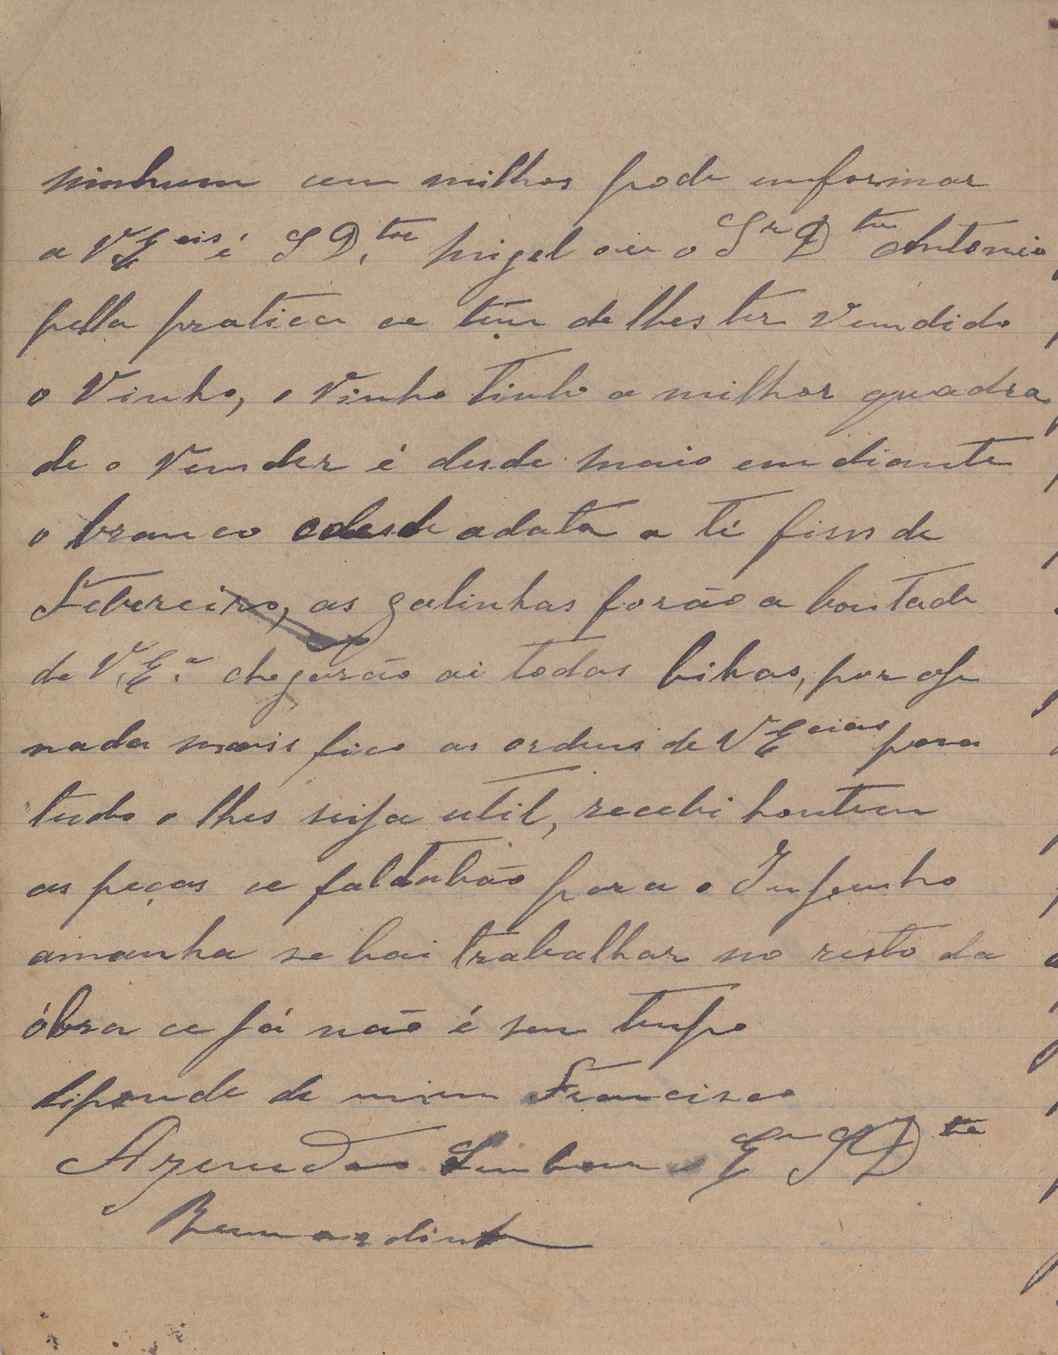 ninhum cem milhor pode emformar
a V E cias é S D.tor Migel ou o Sr Dtor Antonio
pella pratica ce têm de lhes ter vendido
o Vinho, o vinho tinto a milhor quadra
de o vender é desde maio em diante
o branco desde adata a té fins de
Febereiro, as galinhas forão a bontade
de V. E.a chegarão ai todas bibas, por oje
nada mais fico as ordens de V E cias para
tudo o lhes seija util, recebi hontem
as peças ce faltabão para o Injenho
amanha se bai trabalhar no resto da
óbra ce já não é sem tempo
diponde de mim Francisco
Azevedo Senhor E S D tor
Bernardino